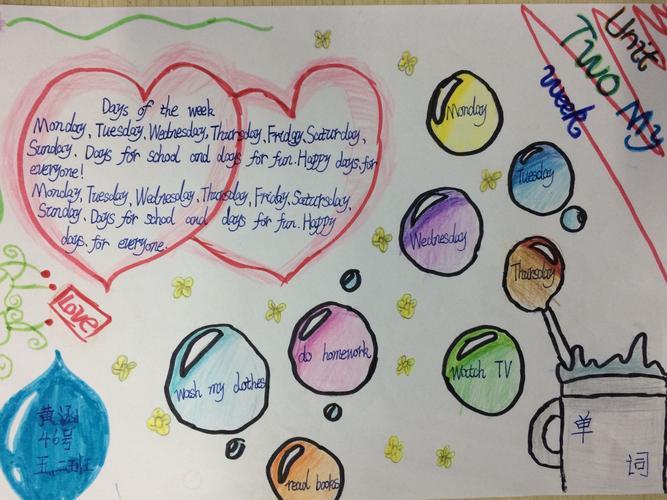 Unit
TWO My
week
Days of the week
Monday, Tuesday, Wednesday, Thursday, Friday, Saturday,
Sunday. Days for school and days for fun. Happy days, for
everyone!
Monday, Tuesday, Wednesday, Thursday, Friday, Saturday,
Sunday. Days for school and days for fun. Happy
days, for everyone.
Monday
Tuesday
Wednesday
Thursday
LOVE
do homework
Watch TV
wash my clothes
read books
单
词
黄
46号
五、二班